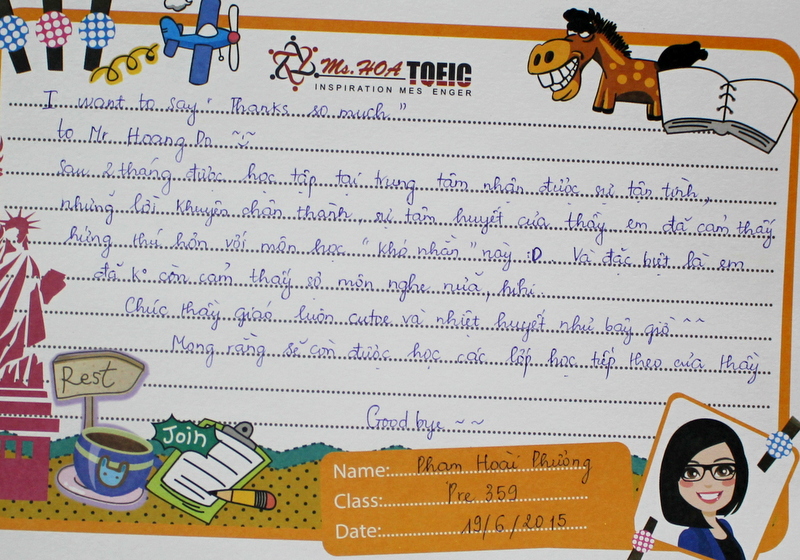 Ms.HOA TOEIC
INSPIRATION MES ENGER
I want to say " Thanks so much "
to Mr. Hoang Dn ~~
Sau 2 tháng được học tập tại trung tâm nhận được sự tận tình,
những lời khuyên chân thành, sự tâm huyết của thầy em đã cảm thấy
hứng thú hơn với môn học " khó nhằn " này :D. Và đặc biệt là em
đã k° còn cảm thấy sợ môn nghe nữa, hihi.
Chúc thầy giáo luôn cutoe và nhiệt huyết như bây giờ ^^
Mong rằng sẽ còn được học các lớp học tiếp theo của thầy
Good bye ~ ~
Rest
Join
Name: Phạm Hoài Phương
Class: Pre 359
Date: 19/6/2015